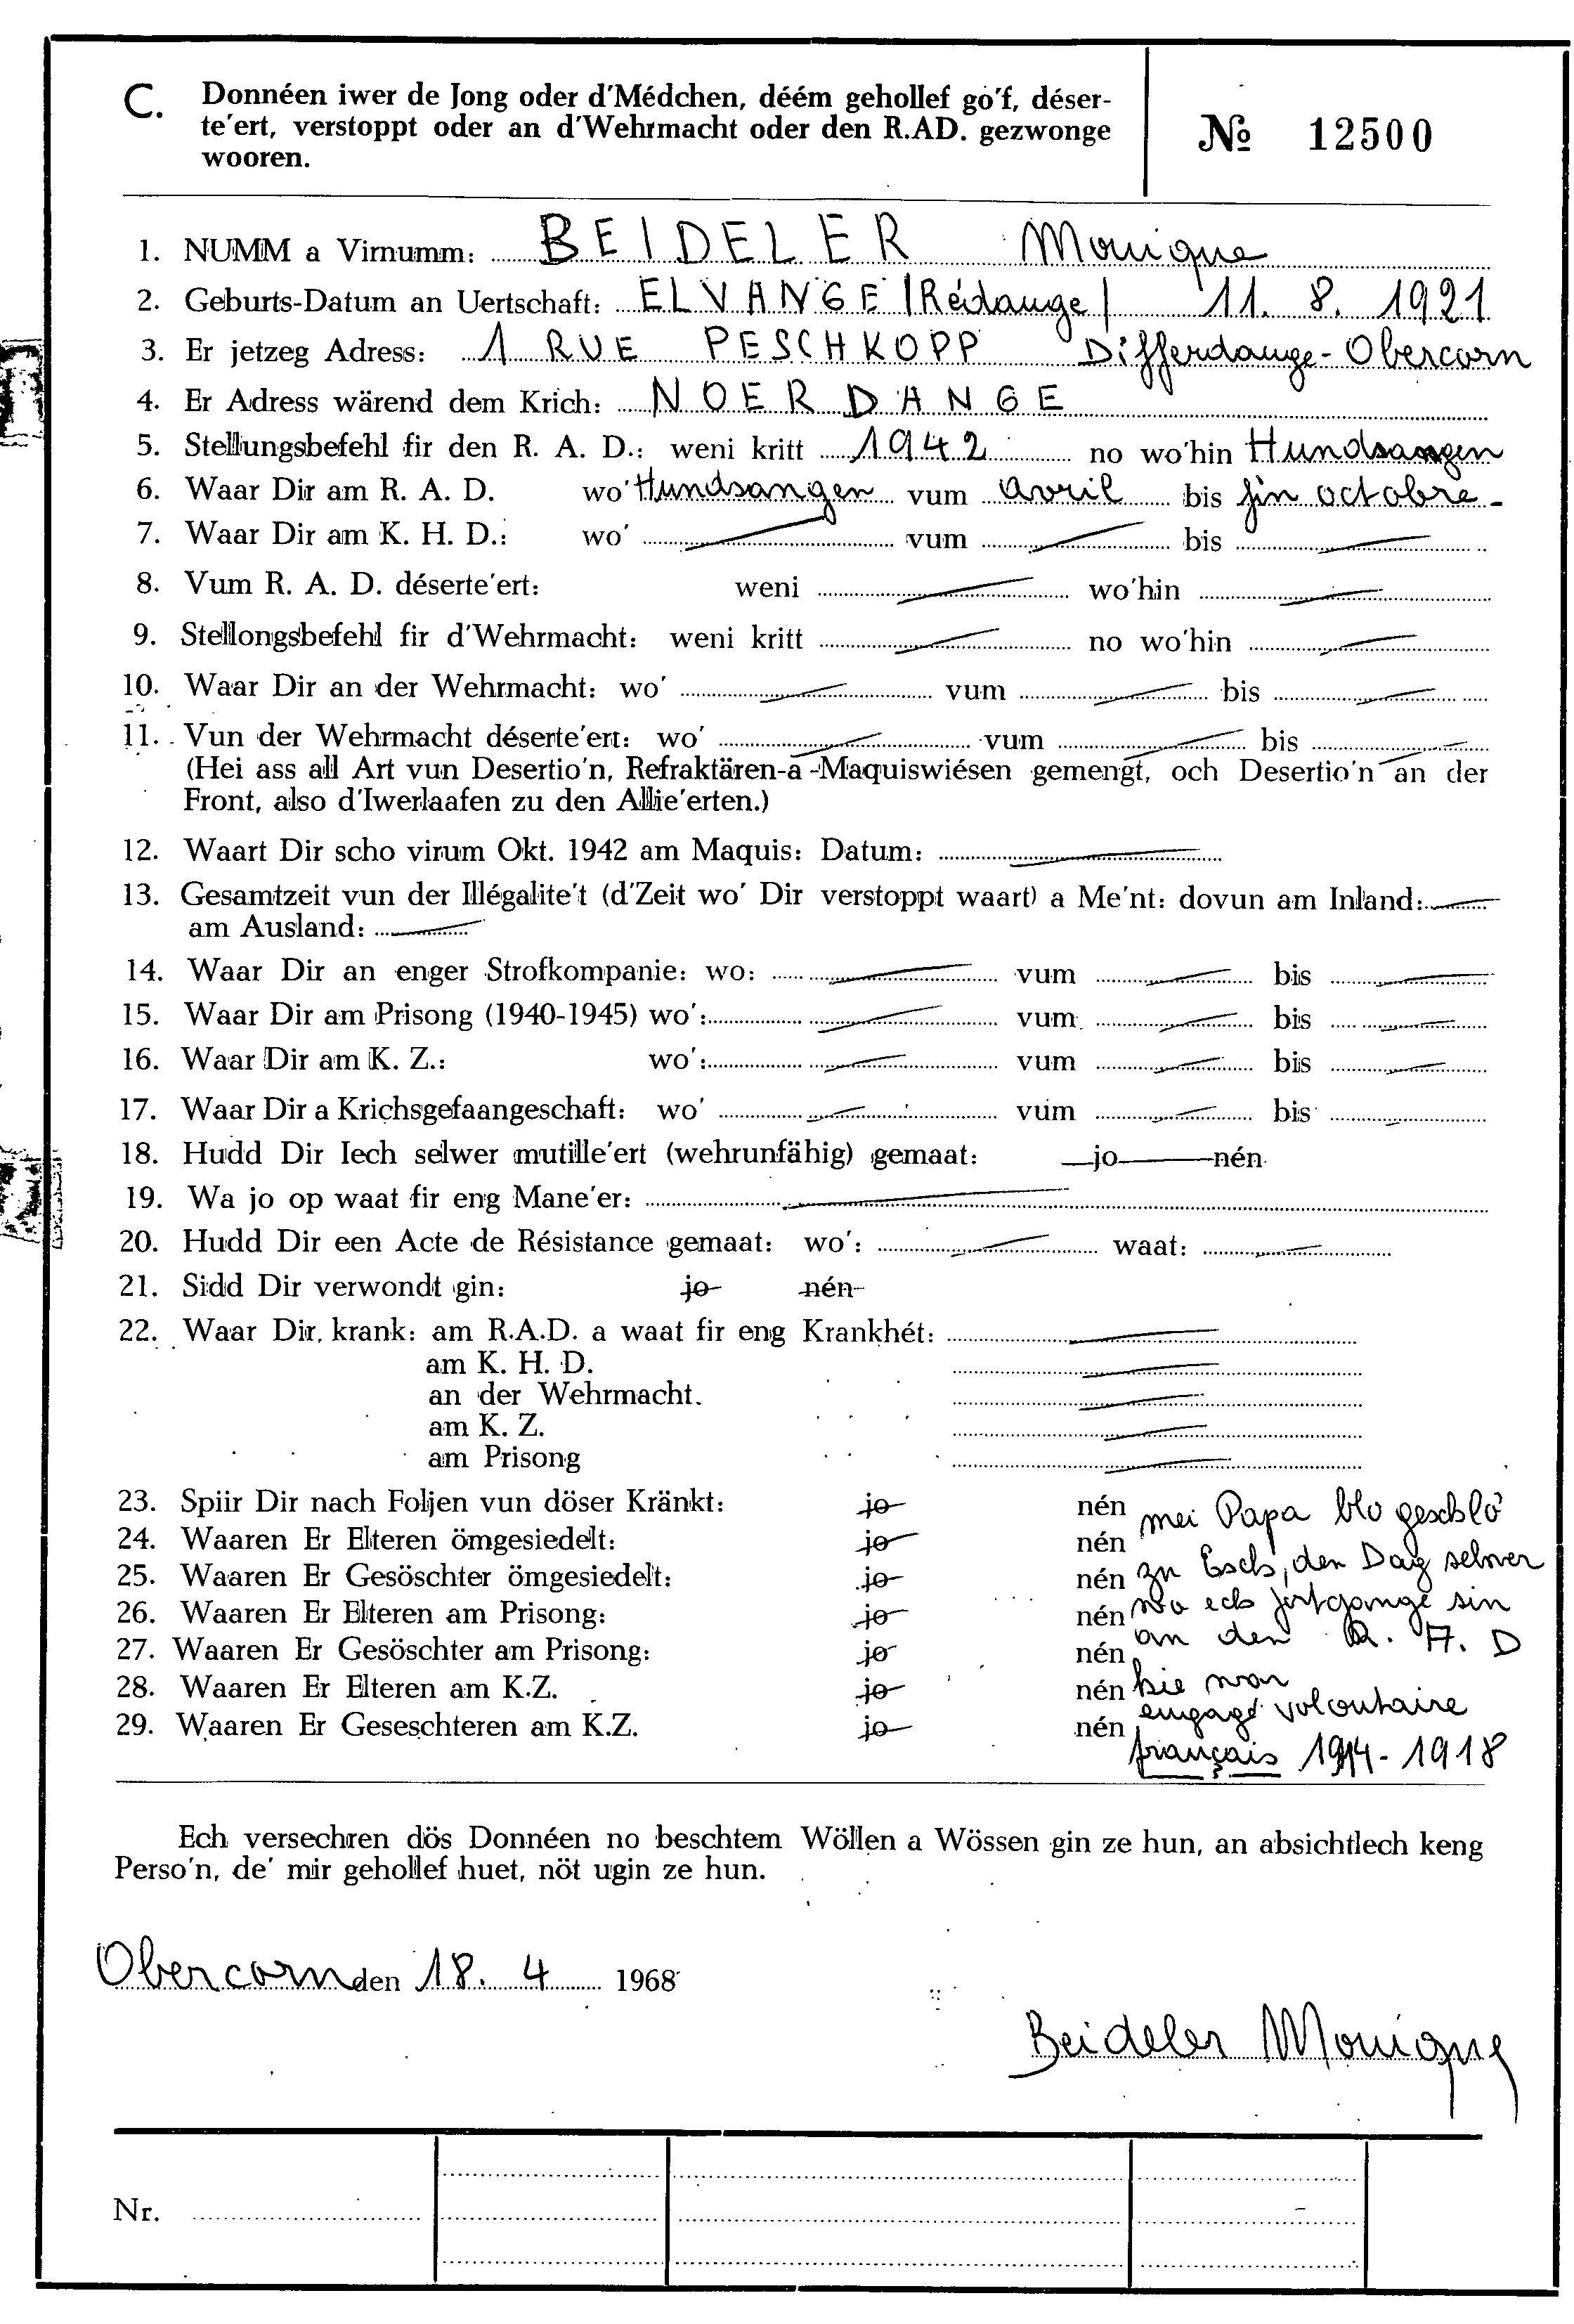 C. Donnéen iwer de Jong oder d'Médchen, déém gehollef go'f, déser-
te'ert, verstoppt oder an d'Wehrmacht oder den R.AD. gezwonge
wooren.
№ 12500
1. NUMM a Virnumm: BEIDELER Monique
2. Geburts-Datum an Uertschaft: ELVANGE |Rédange| 11. 8. 1921
3. Er jetzeg Adress: 1 RUE PESCHKOPP Differdange-Obercorn
4. Er Adress wärend dem Krich: NOERDANGE
5. Stellungsbefehl fir den R. A. D.: weni kritt 1942 no wo'hin Hundsangen
6. Waar Dir am R. A. D. wo' Hundsangen vum avril bis fin octobre-
7. Waar Dir am K. H. D.: wo' vum bis
8. Vum R. A. D. déserte'ert: weni wo'hin
9. Stellongsbefehl fir d'Wehrmacht: weni kritt no wo'hin
10. Waar Dir an der Wehrmacht: wo' vum bis
11. Vun der Wehrmacht déserte'ert: wo' vum bis
(Hei ass all Art vun Desertio'n, Refraktären-a -Maquiswiésen gemengt, och Desertio'n an der
Front, also d'Iwerlaafen zu den Allie'erten.)
12. Waart Dir scho virum Okt. 1942 am Maquis: Datum:
13. Gesamtzeit vun der Illégalite't (d'Zeit wo' Dir verstoppt waart) a Me'nt: dovun am Inland:
am Ausland:
14. Waar Dir an enger Strofkompanie: wo: vum bis
15. Waar Dir am Prisong (1940-1945) wo': vum bis
16. Waar Dir am K. Z.: wo': vum bis
17. Waar Dir a Krichsgefaangeschaft: wo' vum bis
18. Hudd Dir Iech selwer mutille'ert (wehrunfähig) gemaat: jo nén
19. Wa jo op waat fir eng Mane'er:
20. Hudd Dir een Acte de Résistance gemaat: wo': waat:
21. Sidd Dir verwondt gin: jo nén
22. Waar Dir krank: am R.A.D. a waat fir eng Krankhét:
am K. H. D.
an der Wehrmacht.
am K. Z.
am Prisong
23. Spiir Dir nach Foljen vun döser Kränkt: jo nén
24. Waaren Er Elteren ömgesiedelt: jo nén
25. Waaren Er Gesöschter ömgesiedelt: jo nén
26. Waaren Er Elteren am Prisong: jo nén
27. Waaren Er Gesöschter am Prisong: jo nén
28. Waaren Er Elteren am K.Z. jo nén
29. Waaren Er Geseschteren am K.Z. jo nén
mei Papa blo geschlo
zu Esch, den Dag selwer
wo ech fortgange sin
an den R. A. D
hie war
engagé volontaire
français 1914-1918
Ech versechren dös Donnéen no beschtem Wöllen a Wössen gin ze hun, an absichtlech keng
Perso'n, de' mir gehollef huet, nöt ugin ze hun.
Obercorn den 18. 4 1968
Beideler Monique
Nr.